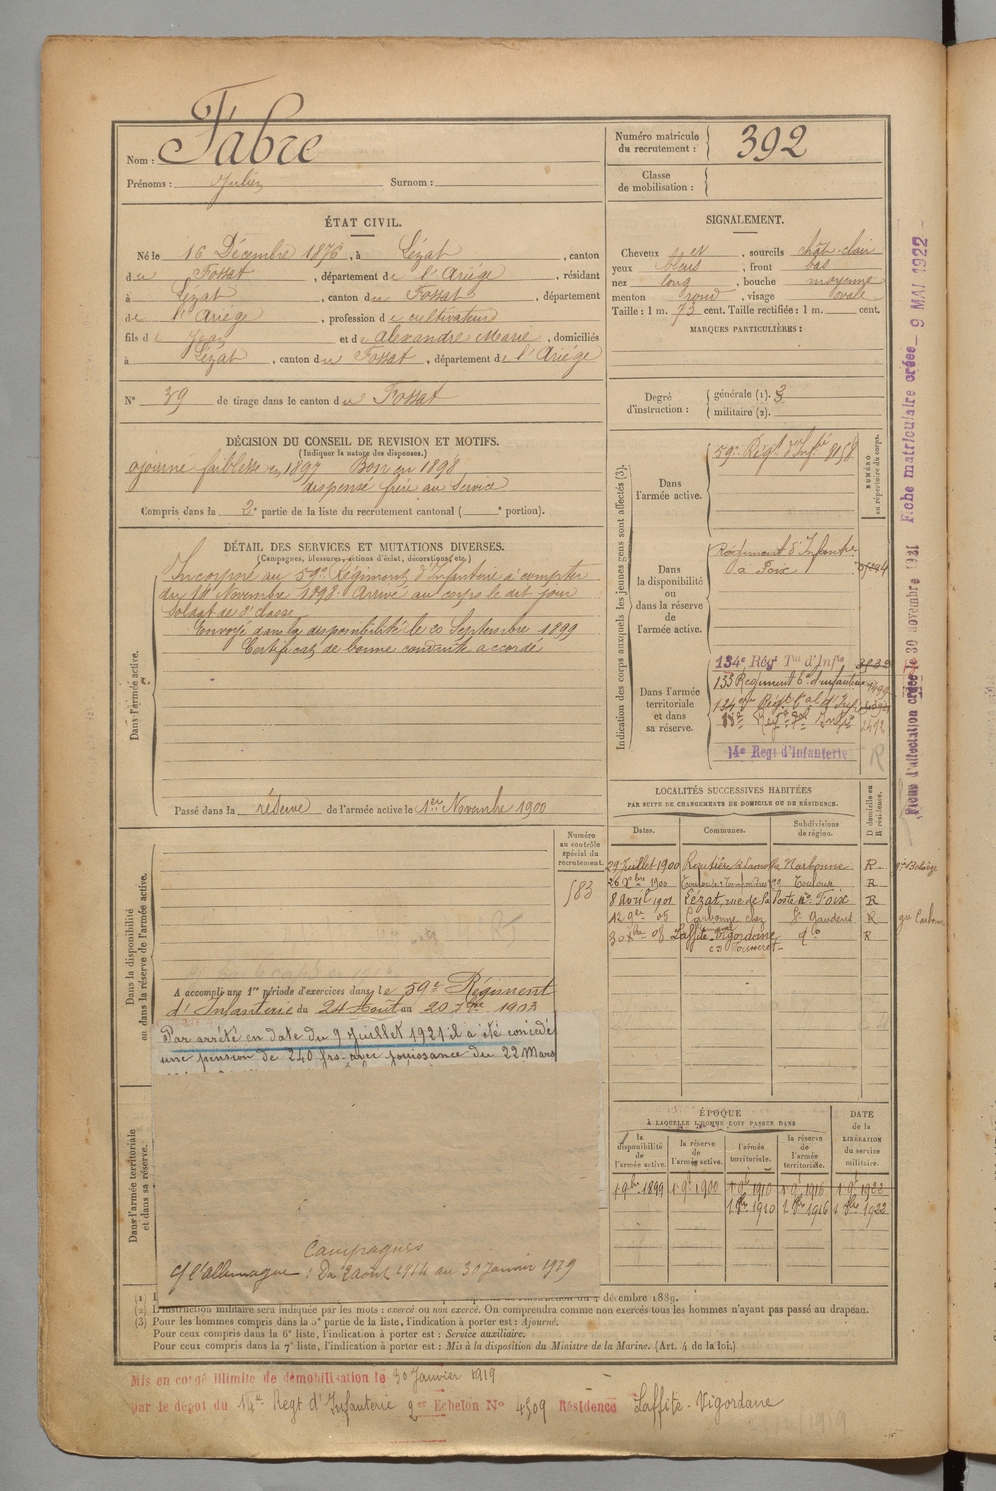 Nom : Fabre
Prénoms : Julien Surnom :
Numéro matricule du recrutement : 392
Classe de mobilisation :
ÉTAT CIVIL.
Né le 16 Décembre 1876, à Lézat, canton
du Fossat, département de l'Ariège, résidant
à Lézat, canton du Fossat, département
de l'Ariège, profession de cultivateur
fils de Jean et de Alexandre Marie, domiciliés
à Lézat, canton du Fossat, département de l'Ariège
N° 39 de tirage dans le canton du Fossat
SIGNALEMENT.
Cheveux et, sourcils chât-clair
yeux bleus, front bas
nez long, bouche moyenne
menton rond, visage ovale
Taille : 1 m. 73 cent. Taille rectifiée : 1 m. cent.
MARQUES PARTICULIÈRES :
Degré d'instruction : générale (1). 3
militaire (2).
DÉCISION DU CONSEIL DE REVISION ET MOTIFS.
(Indiquer la nature des dispenses.)
ajourné faiblesse en 1897 Bon en 1898
dispensé frère au service
Compris dans la 2e partie de la liste du recrutement cantonal ( e portion).
DÉTAIL DES SERVICES ET MUTATIONS DIVERSES.
(Campagnes, blessures, actions d'éclat, décorations, etc.)
Dans l'armée active.
Incorporé au 59e Régiment d'Infanterie à compter
du 14 Novembre 1898. Arrivé au corps le dit jour
Soldat de 2e classe
Envoyé dans la disponibilité le 20 Septembre 1899
Certificat de bonne conduite accordé
Passé dans la réserve de l'armée active le 1er Novembre 1900
Indication des corps auxquels les jeunes gens sont affectés (3).
NUMÉRO au répertoire du corps.
Dans l'armée active.
59e Régt d'Infie 8158
Dans la disponibilité ou dans la réserve de l'armée active.
Régiment d'Infanterie
à Foix
Dans l'armée territoriale et dans sa réserve.
134e Régt Tal d'Infie
133 Régiment d'infanterie
134e Régt tal d'Inf
14e Regt d'Infanterie
R
Numéro au contrôle spécial du recrutement.
583
Dans la disponibilité ou dans la réserve de l'armée active.
A accompli une 1re période d'exercices dans le 59e Régiment
d'Infanterie du 24 Août au 20 7bre 1903
Par arrêté en date du 9 Juillet 1921 il a été concédé
une pension de 240 frs. avec jouissance du 22 Mars
Dans l'armée territoriale et dans sa réserve.
Campagnes
C/ l'allemagne : Du 2 août 1914 au 30 Janvier 1919
LOCALITÉS SUCCESSIVES HABITÉES
PAR SUITE DE CHANGEMENTS DE DOMICILE OU DE RÉSIDENCE.
Dates. Communes. Subdivisions de région. D domicile ou R résidence.
29 Juillet 1900 Narbonne R
26 Xbre 1900 Toulouse Toulouse R
8 Avril 1901 Lézat, rue de la Poste Foix R
12 9bre 05 Carbonne St Gaudens R
30 Xbre 08 Laffite-Vigordane do R
ÉPOQUE
À LAQUELLE L'HOMME DOIT PASSER DANS
la disponibilité de l'armée active. la réserve de l'armée active. l'armée territoriale. la réserve de l'armée territoriale. DATE de la LIBÉRATION du service militaire.
1 9bre 1899 1 9e 1900 1 9e 1910 1 9e 1916 1 9e 1922
1 8bre 1910 1 8bre 1916 1 8bre 1922
décembre 1889.
(2) L'instruction militaire sera indiquée par les mots : exercé ou non exercé. On comprendra comme non exercés tous les hommes n'ayant pas passé au drapeau.
(3) Pour les hommes compris dans la 5e partie de la liste, l'indication à porter est : Ajourné.
Pour ceux compris dans la 6e liste, l'indication à porter est : Service auxiliaire.
Pour ceux compris dans la 7e liste, l'indication à porter est : Mis à la disposition du Ministre de la Marine. (Art. 4 de la loi.)
Mis en congé illimité de démobilisation le 30 Janvier 1919
par le dépôt du 14e Régt d'Infanterie 2e Echelon N° 4509 Résidence Laffite-Vigordane
Fiche matriculaire créée 9 MAI 1922
Fiche d'affectation créée le 30 novembre 1921